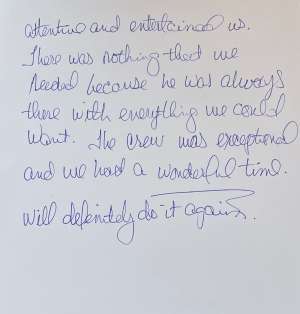 attentive and entertained us.
There was nothing that we
needed because he was always
there with everything we could
want. The crew was exceptional
and we had a wonderful time.
Will definitely do it again.